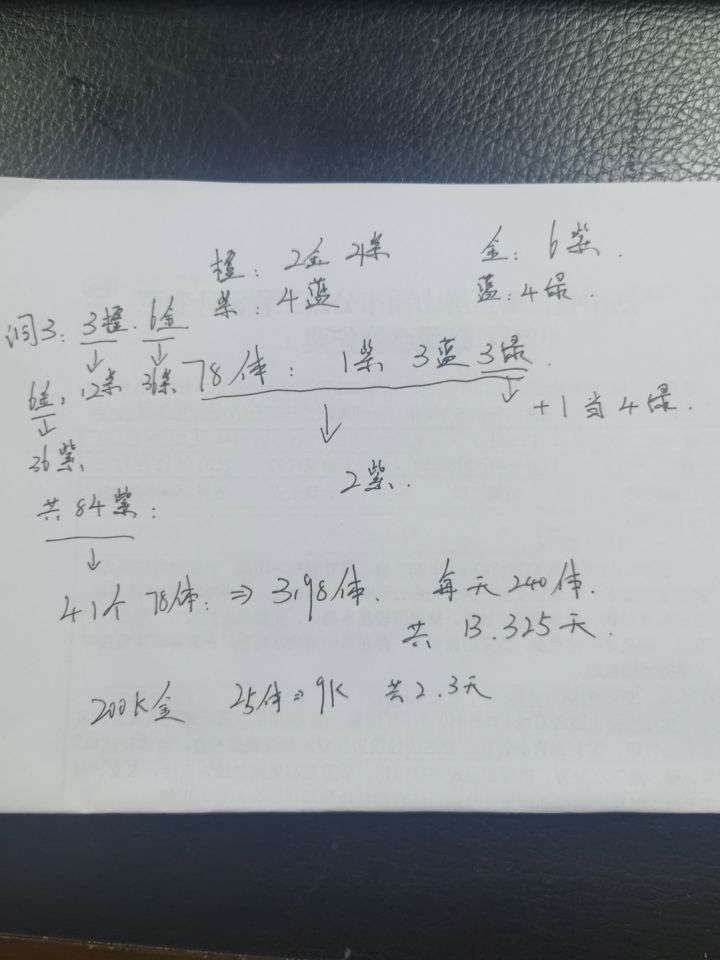 橙：2金 4紫
金：6紫.
紫：4蓝
蓝：4绿
问3：3橙. 6金
6金, 12紫 36紫
36紫
共84紫：
78体： 1紫 3蓝 3绿.
+1当4绿.
2紫.
41个78体： ⇒ 3198体 每天240体.
共 13.325天.
200K金 25体⇒9K 共2.3天